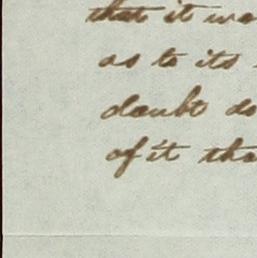 that it wa
as to its
doubt do
of it tha